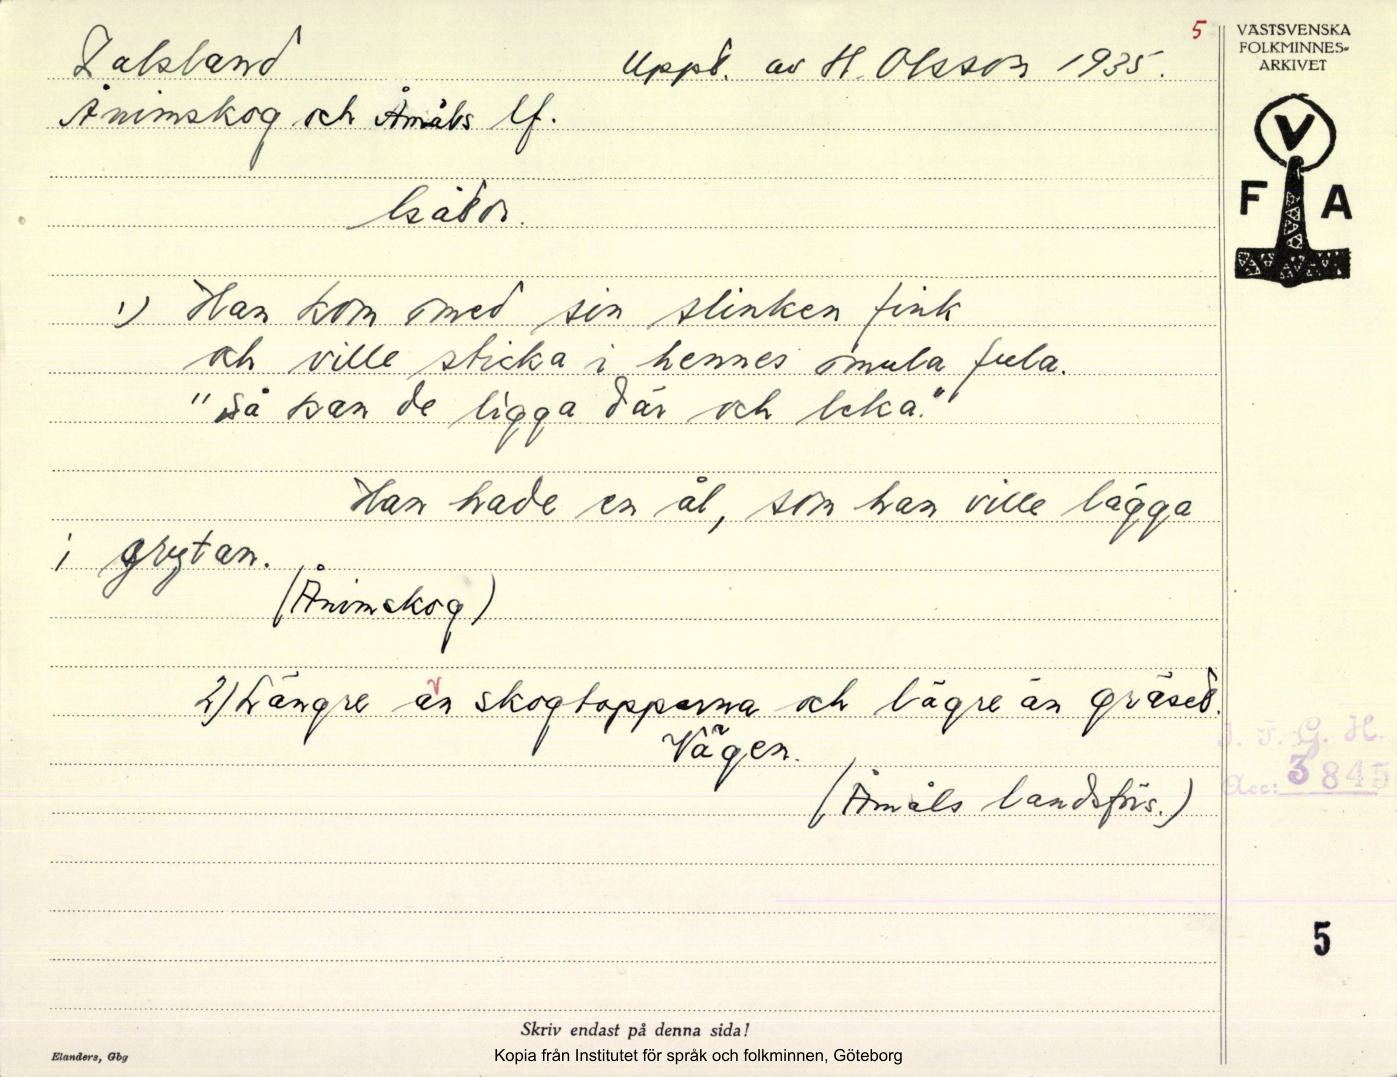 5
VÄSTSVENSKA
FOLKMINNES-
ARKIVET
Dalsland Uppt. av H. Olsson 1935.
Ånimskog och Åmåls lf.
V
F A
Gåtor.
1) Han kom med sin slinken fink
och ville sticka i hennes mula fula.
"Så kan de ligga där och leka."
Han hade en ål, som han ville lägga
i grytan.
(Ånimskog)
2) Längre än skogtopparna och lägre än gräset.
Vägen.
(Åmåls landsförs.)
I. F. G. H.
Acc: 3845
5
Skriv endast på denna sida!
Elanders, Gbg
Kopia från Institutet för språk och folkminnen, Göteborg